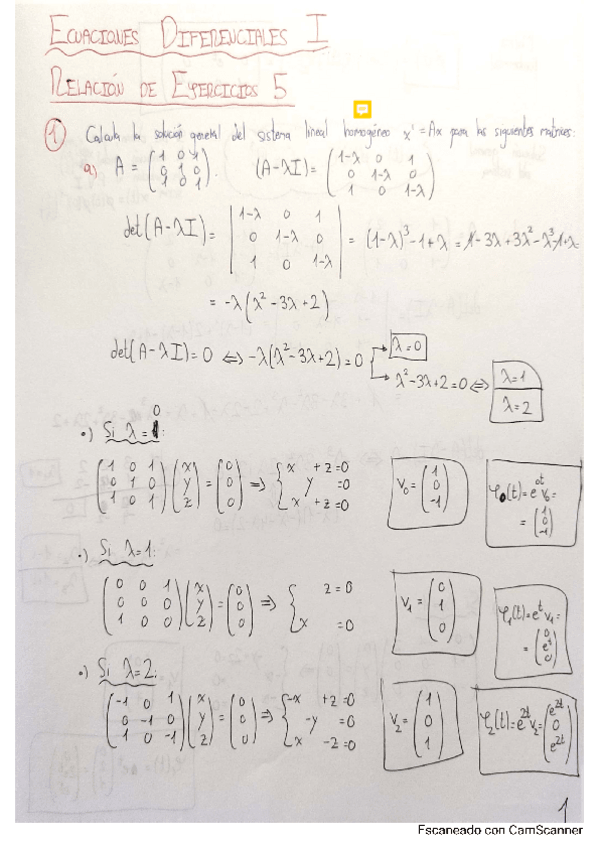 ECUACIONES DIFERENCIALES I
RELACIÓN DE EJERCICIOS 5
① Calcula la solución general del sistema lineal homogéneo x' = Ax para las siguientes matrices:
a) A = (1 0 1; 0 1 0; 1 0 1). (A-λI) = (1-λ 0 1; 0 1-λ 0; 1 0 1-λ)
det(A-λI) = |1-λ 0 1; 0 1-λ 0; 1 0 1-λ| = (1-λ)³ -1+λ = 1-3λ+3λ²-λ³-1+λ =
= -λ(λ² -3λ+2)
det(A-λI)=0 ⇔ -λ(λ²-3λ+2)=0 → λ=0
→ λ²-3λ+2=0 ⇔ λ=1
λ=2
•) Si λ=0:
(1 0 1; 0 1 0; 1 0 1)(x; y; z) = (0; 0; 0) ⇒ { x +z=0; y =0; x +z=0 V₀ = (1; 0; -1) φ₀(t)=e^{0t} v₀= = (1; 0; -1)
•) Si λ=1:
(0 0 1; 0 0 0; 1 0 0)(x; y; z) = (0; 0; 0) ⇒ { z=0; x =0 V₁ = (0; 1; 0) φ₁(t)=e^t v₁= = (0; e^t; 0)
•) Si λ=2:
(-1 0 1; 0 -1 0; 1 0 -1)(x; y; z) = (0; 0; 0) ⇒ { -x +z=0; -y =0; x -z=0 V₂ = (1; 0; 1) φ₂(t)=e^{2t} v₂= (e^{2t}; 0; e^{2t})
1
Escaneado con CamScanner